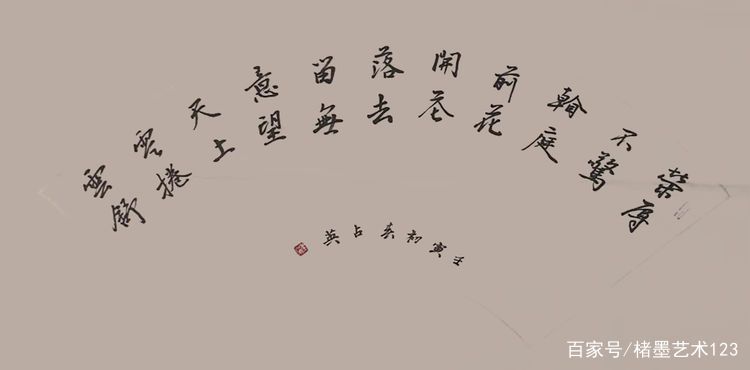 榮辱
不驚
庭
前花
開花
落去
留無
意望
天上
雲捲
雲舒
壬寅初占英
百家号/楮墨艺术123